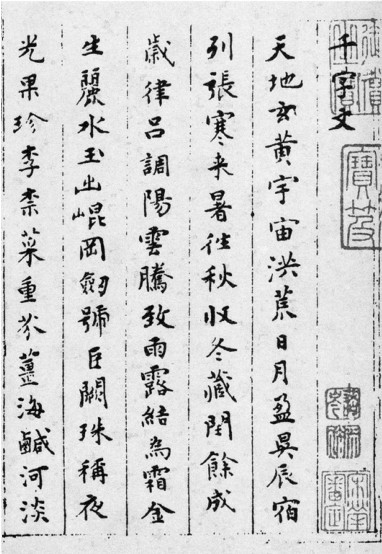 寶笈
千字文
天地玄黄宇宙洪荒日月盈昃辰宿
列張寒来暑往秋收冬藏閏餘成
歲律呂調陽雲騰致雨露結為霜金
生麗水玉出崐岡劒號巨闕珠稱夜
光果珍李柰菜重芥薑海鹹河淡